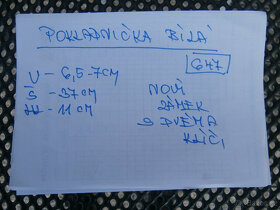 POKLADNIČKA BÍLÁ
647
V - 6,5-7CM
Š - 37CM
HL - 11CM
NOVÍ
ZÁMEK
S DVĚMA
KLÍČI,